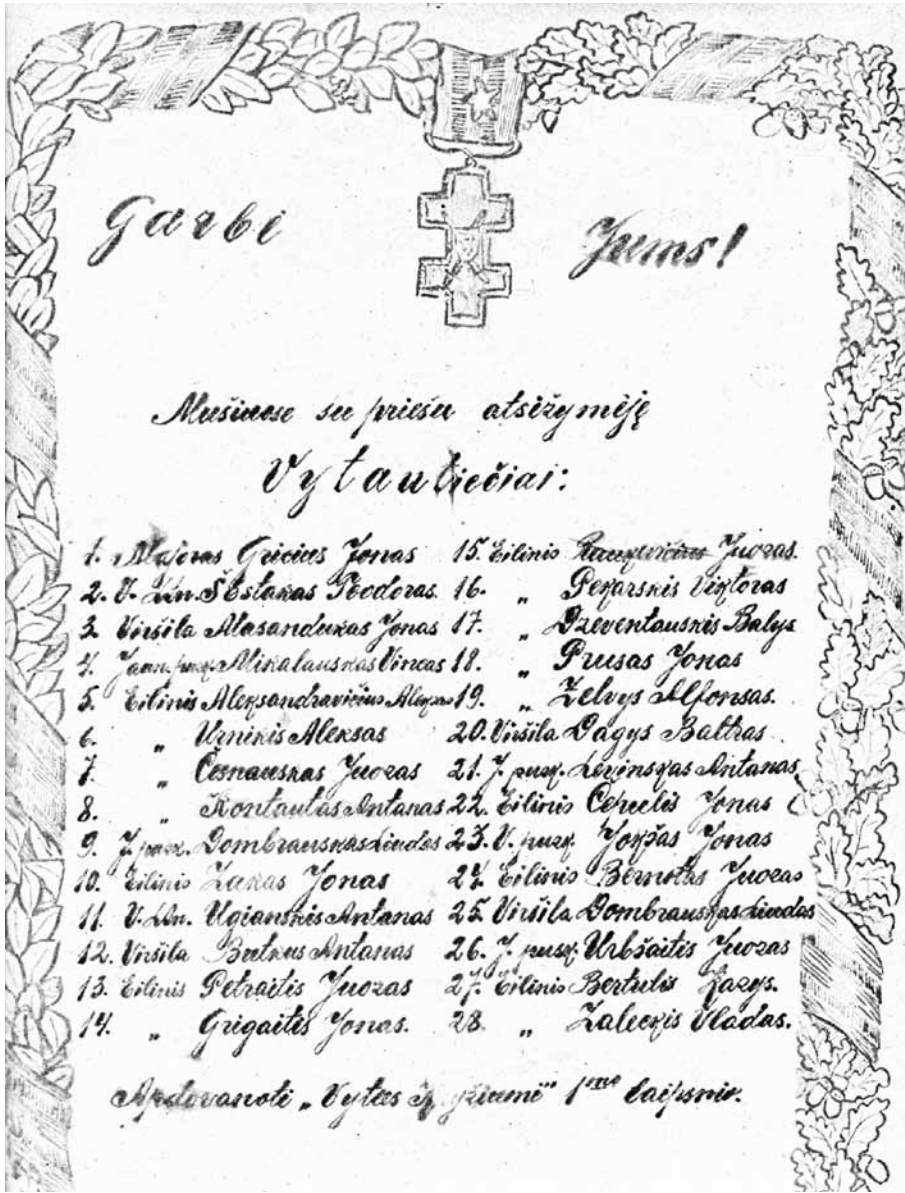 Garbė Jums!
Mūšiuose su priešu atsižymėję
Vytautiečiai:
1. Majoras Gricius Jonas
2. V. Ltn. Šestakas Teodoras
3. Viršila Alasandukas Jonas
4. Jaun. pusk. Mikalauskas Vincas
5. Eilinis Aleksandravičius
6. „ Urnikis Aleksas
7. „ Česnauskas Juozas
8. „ Kontautas Antanas
9. J. pusk. Dombrauskas Liudas
10. Eilinis Zakas Jonas
11. V. Ltn. Ugianskis Antanas
12. Viršila Butkus Antanas
13. Eilinis Petraitis Juozas
14. „ Grigaitis Jonas.
15. Eilinis Juozas.
16. „ Pekarskis Viktoras
17. „ Dzeventauskis Balys
18. „ Prusas Jonas
19. „ Želvys Alfonsas.
20. Viršila Dagys Baltras
21. J. pusk. Levinskas Antanas
22. Eilinis Jonas
23. V. pusk. Jokšas Jonas
24. Eilinis Bernotas Juozas
25. Viršila Dombrauskas Liudas
26. J. pusk. Urbšaitis Juozas
27. Eilinis Bertulis Kazys.
28. „ Zaleckis Vladas.
Apdovanoti „Vyties 1 laipsnio.